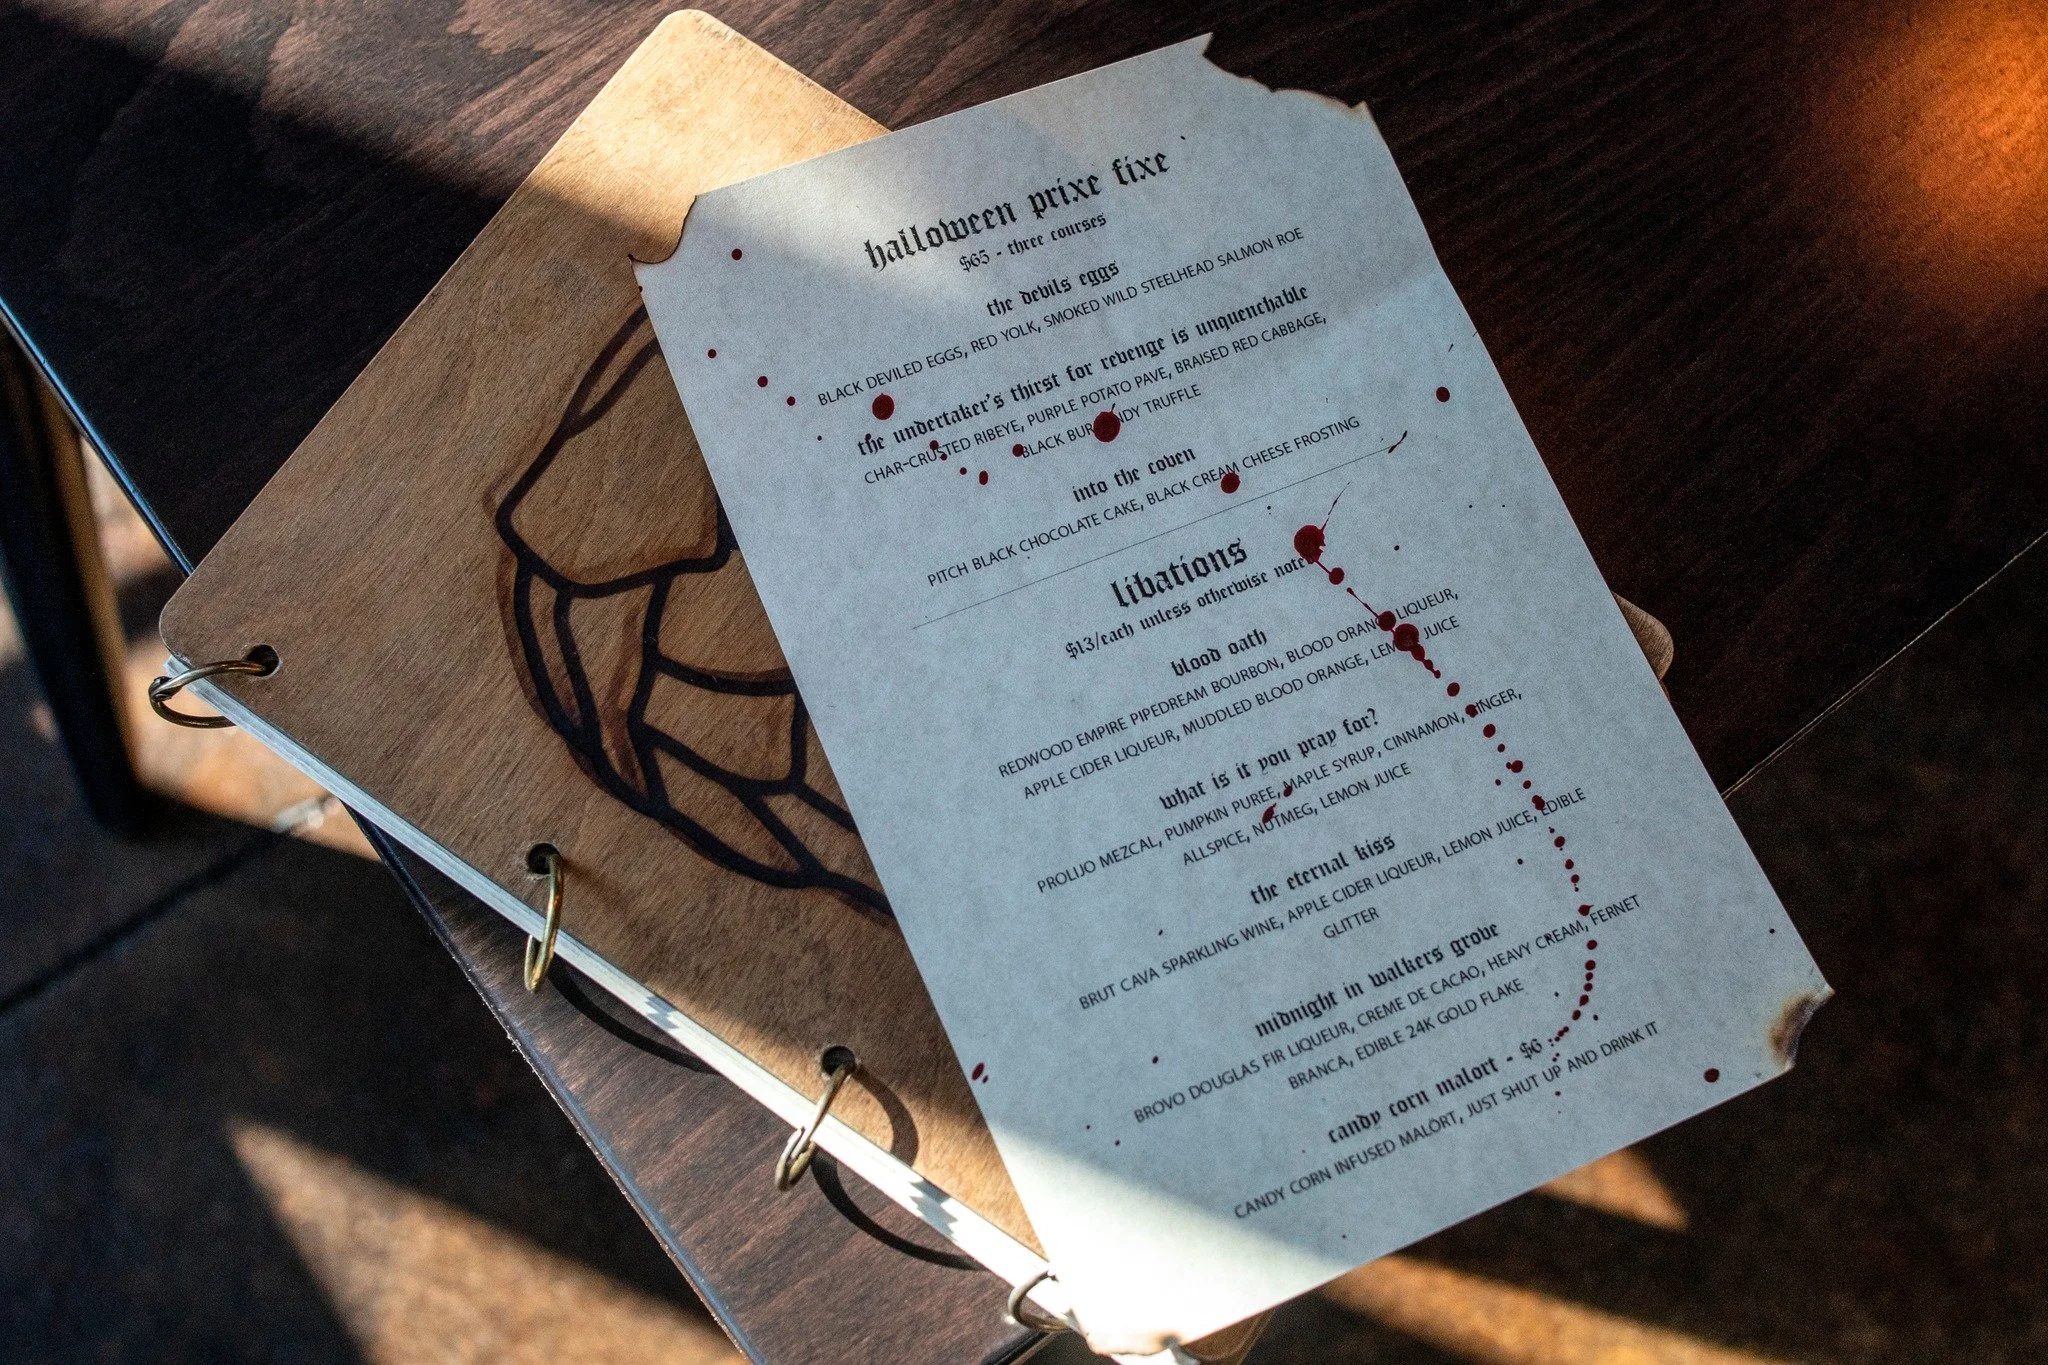 halloween prixe fixe
$65 - three courses
the devils eggs
BLACK DEVILED EGGS, RED YOLK, SMOKED WILD STEELHEAD SALMON ROE
the undertaker's thirst for revenge is unquenchable
CHAR-CRUSTED RIBEYE, PURPLE POTATO PAVE, BRAISED RED CABBAGE,
BLACK BURGUNDY TRUFFLE
into the coven
PITCH BLACK CHOCOLATE CAKE, BLACK CREAM CHEESE FROSTING
libations
$13/each unless otherwise noted
blood oath
REDWOOD EMPIRE PIPEDREAM BOURBON, BLOOD ORANGE LIQUEUR,
APPLE CIDER LIQUEUR, MUDDLED BLOOD ORANGE, LEMON JUICE
what is it you pray for?
PROLIJO MEZCAL, PUMPKIN PUREE, MAPLE SYRUP, CINNAMON, GINGER,
ALLSPICE, NUTMEG, LEMON JUICE
the eternal kiss
BRUT CAVA SPARKLING WINE, APPLE CIDER LIQUEUR, LEMON JUICE, EDIBLE
GLITTER
midnight in walkers grove
BROVO DOUGLAS FIR LIQUEUR, CREME DE CACAO, HEAVY CREAM, FERNET
BRANCA, EDIBLE 24K GOLD FLAKE
candy corn malort - $6
CANDY CORN INFUSED MALÖRT, JUST SHUT UP AND DRINK IT